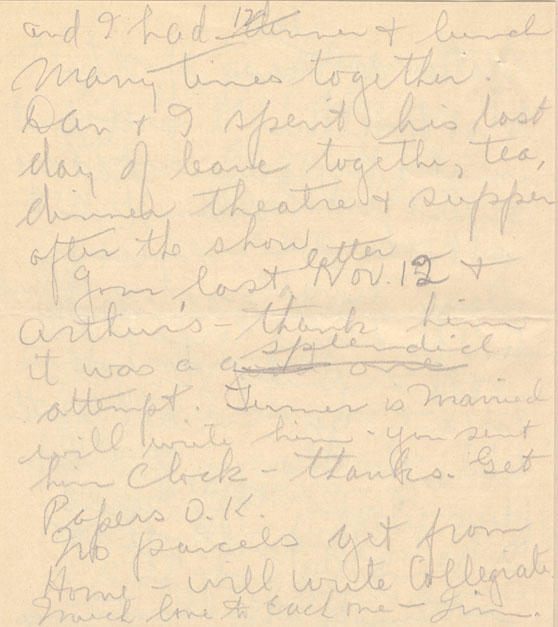 and I had dinner & lunch
many times together.
Dan & I spent his last
day of leave together, tea,
dinner theatre & supper
after the show
Your last letter Nov. 12 &
Arthur's - thank him
it was a splendid
attempt. Turner is married
will write him - you sent
him Clock - thanks. Get
Papers O.K.
No parcels yet from
Home - will write Collegiate
Much love to Each one - Jim.